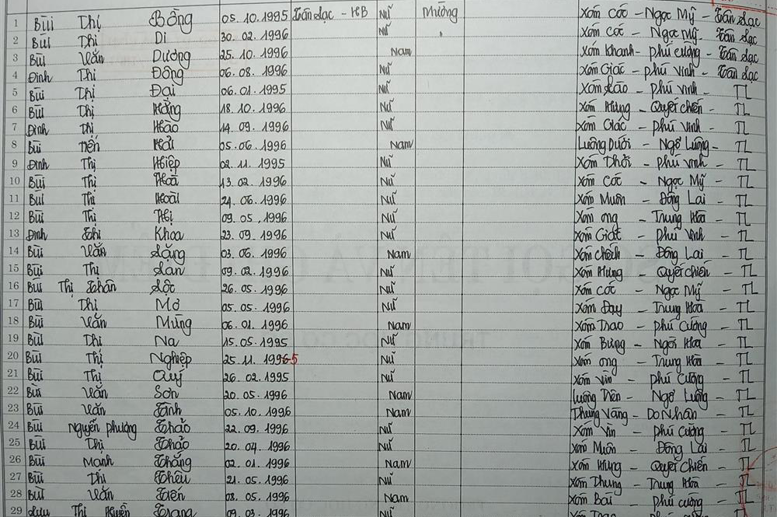 1 Bùi Thị Bông 05.10.1995 Tân Lạc - HB Nữ Mường Xóm Cóc - Ngọc Mỹ - Tân Lạc
2 Bùi Thị Di 30.02.1996 Nữ Xóm Cóc - Ngọc Mỹ - Tân Lạc
3 Bùi Văn Dương 25.10.1996 Nam Xóm Khanh - Phú Cường - Tân Lạc
4 Đinh Thị Đông 06.08.1996 Nữ Xóm Giác - Phú Vinh - Tân Lạc
5 Bùi Thị Đại 06.01.1995 Nữ Xóm Lão - Phú Vinh - TL
6 Bùi Thị Hằng 18.10.1996 Nữ Xóm Hưng - Quyết Chiến - TL
7 Đinh Thị Hào 14.09.1996 Nữ Xóm Giác - Phú Vinh - TL
8 Bùi Tiến Hải 05.06.1996 Nam Luông Dưới - Ngổ Luông - TL
9 Đinh Thị Hiệp 02.11.1995 Nữ Xóm Thỏi - Phú Vinh - TL
10 Bùi Thị Hoà 13.02.1996 Nữ Xóm Cóc - Ngọc Mỹ - TL
11 Bùi Thị Hoài 24.06.1996 Nữ Xóm Muôn - Đông Lai - TL
12 Bùi Thị 09.05.1996 Nữ Xóm Ong - Trung Hoà - TL
13 Đinh Khoa 23.09.1996 Nữ Xóm Giác - Phú Vinh - TL
14 Bùi Văn 03.06.1996 Nam Xóm - Đông Lai - TL
15 Bùi Thị Lan 09.02.1996 Nữ Xóm Hưng - Quyết Chiến - TL
16 Bùi Thị Lộc 26.05.1996 Nữ Xóm Cóc - Ngọc Mỹ - TL
17 Bùi Thị Mơ 05.05.1996 Nữ Xóm Đạy - Trung Hoà - TL
18 Bùi Văn Mừng 06.01.1996 Nam Xóm Trao - Phú Cường - TL
19 Bùi Thị Na 15.05.1995 Nữ Xóm Bưng - Ngòi Hoa - TL
20 Bùi Thị Nghiệp 25.11.1996 5 Nữ Xóm Ong - Trung Hoà - TL
21 Bùi Thị Quý 26.02.1995 Nữ Xóm Vìn - Phú Cường - TL
22 Bùi Văn Sơn 20.05.1996 Nam Luông Trên - Ngổ Luông - TL
23 Bùi Văn 05.10.1996 Nam Thung Vang - Do Nhân - TL
24 Bùi Nguyễn Phương Thảo 22.09.1996 Nữ Xóm Vìn - Phú Cường - TL
25 Bùi Thị Thảo 20.04.1996 Nữ Xóm Muôn - Đông Lai - TL
26 Bùi Mạnh Thắng 02.01.1996 Nam Xóm Hưng - Quyết Chiến - TL
27 Bùi Thị Thêu 21.05.1996 Nữ Xóm Thung - Trung Hoà - TL
28 Bùi Văn 08.05.1996 Nam Xóm Bái - Phú Cường - TL
29 Lưu Thị Huyền Trang 09.03.1996 Nữ